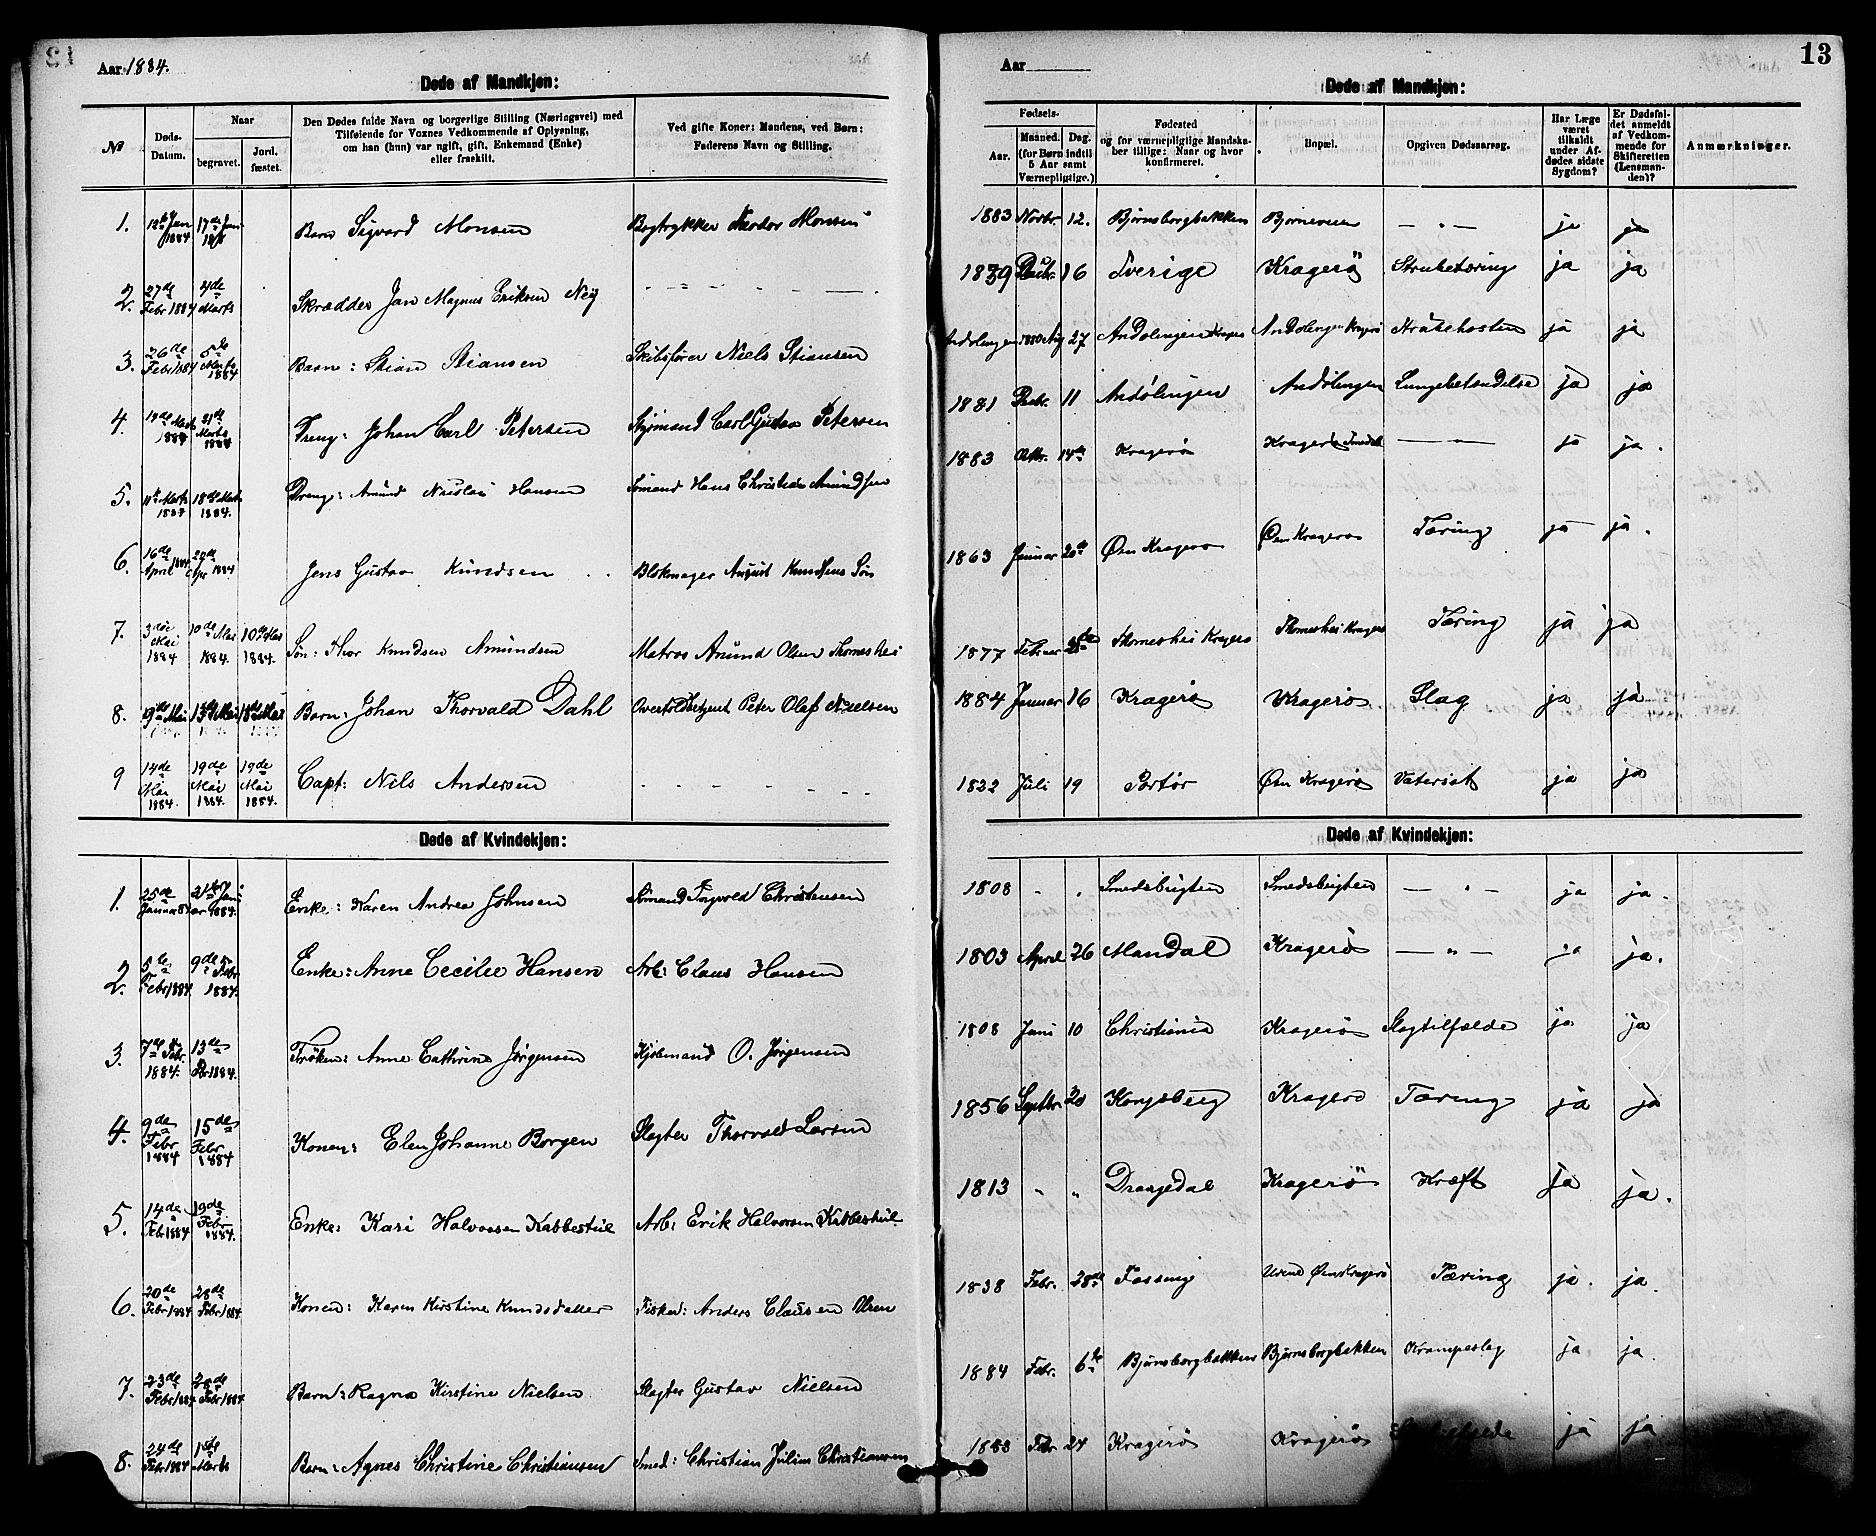 Aar 1884.
Døde af Mandkjøn:
No
Døds-Datum.
Naar
begravet.
Jord. fæstet.
Den Dødes fulde Navn og borgerlige Stilling (Næringsvei) med
Tilføiende for Voxnes Vedkommende af Oplysning,
om han (hun) var ugift, gift, Enkemand (Enke)
eller fraskilt.
Ved gifte Koner: Mandens, ved Børn:
Faderens Navn og Stilling.
1. 12te Jan 1884 17de Jan Barn Sigvard Monsen Bogtrykker Theodor Monsen
2. 27de Febr 1884 4de Marts Skrædder Jan Magnus Eriksen Ney - - - - -
3. 26de Febr 1884 5de Marts 1884 Barn: Stian Stiansen Skibsfører Niels Stiansen
4. Marts 1884 Marts 1884 Dreng: Johan Carl Petersen Styrmand Carl Gustav Petersen
5. 11te Marts 1884 18de Marts 1884. Dreng: Amund Hansen Sømand Hans Christian Amundsen
6. 16de April 1884 Apr 1884 Jens Gustav Knudsen Blokmager August Knudsens Søn
7. 3die Mai 1884 10de Mai 1884. 10de Mai 1884. Søn: Thor Knudsen Amundsen Matros Amund Olsen Thomeshei
8. 9de Mai 13de Mai 18de Mai Barn: Johan Thorvald Dahl Overtoldbetjent Peter Olaf Nielsen
9 14de Mai 1884. 19de Mai 1884. 19de Mai 1884. Capt: Nils Andersen - - - - -
Døde af Kvindekjøn:
1. 25de Januar 84 1884. Enke: Karen Andrea Johnsen Sømand Ingvald Christensen
2. 5te Febr 1884. 9de Febr 1884. Enke: Anne Cecilie Hansen Arb: Claus Hansen
3. 7de Febr. 1884. 13de Febr 1884. Frøken: Anne Cathrine Jørgensen Kjøbmand O. Jørgensen
4. 9de Febr 1884 15de Febr 1884 Konen: Elen Johanne Borgen Slagter Thorvald Larsen
5. 14de Febr 1884 19de Febr 1884. Enke: Kari Halvorsen Kabbestul Arb: Erik Halvorsen Kabbestul
6. 20de Febr 1884 28de Febr 1884 Konen: Karen Kirstine Knudsdatter Fisker: Anders Clausen Uren
7. 23de Febr 1884 28de Febr 1884 Barn: Ragna Kirstine Nielsen Slagter Gustav Nielsen
8. 24de Febr 1884 1ste Marts Barn: Agnes Christine Christiansen Smed: Christian Julius Christiansen
Aar
13
Døde af Mandkjøn:
Fødsels-
Aar.
Maaned. (for Børn indtil 5 Aar samt Værnepligtige.)
Dag.
Fødested
og for værnepligtige Mandskaber tillige: Naar og hvor konfirmeret.
Bopæl.
Opgiven Dødsaarsag.
Har Læge været tilkaldt under Afdødes sidste Sygdom?
Er Dødsfaldet anmeldt af Vedkommende for Skifteretten (Lensmanden)?
Anmærkninger.
1883 Novbr. 12. Bjørnsborgbakken Bjørneveien — " — ja ja
1839 16 Sverige Kragerø Strubetæring ja ja
Andølingen 1880 Aug 27 Andølingen Kragerø Andølingen Kragerø Strubehosten ja ja
1881 Decbr. 11 Andølingen Andølingen Lungebetændelse ja ja
1883 Oktbr. 14de Kragerø Kragerø — " — ja ja.
1863 Januar 20de Øen Kragerø Øen Kragerø Tæring ja ja.
1877 Februar Thomeshei Kragerø Thomeshei Kragerø Tæring ja ja
1884 Januar 16 Kragerø Kragerø Slag ja ja
1822 Juli 19 Portør Øen Kragerø Vatersot ja ja
Døde af Kvindekjøn:
1808 " " Smedsbugten Smedsbugten — " — ja ja.
1803 April 26 Mandal Kragerø — " — ja ja.
1808 Juni 10 Christiania Kragerø Slagtilfælde ja ja
1856 Septbr. 20 Kongsberg Kragerø Tæring ja ja
1813 " " Drangedal Kragerø Kræft ja ja.
1838 Febr. 28de Fossing Urene Øen Kragerø Tæring ja. ja.
1884 Febr. 6te Bjørnsborgbakken Bjørnsborgbakken Krampeslag ja ja.
1883 Febr 24 Kragerø Kragerø ja ja